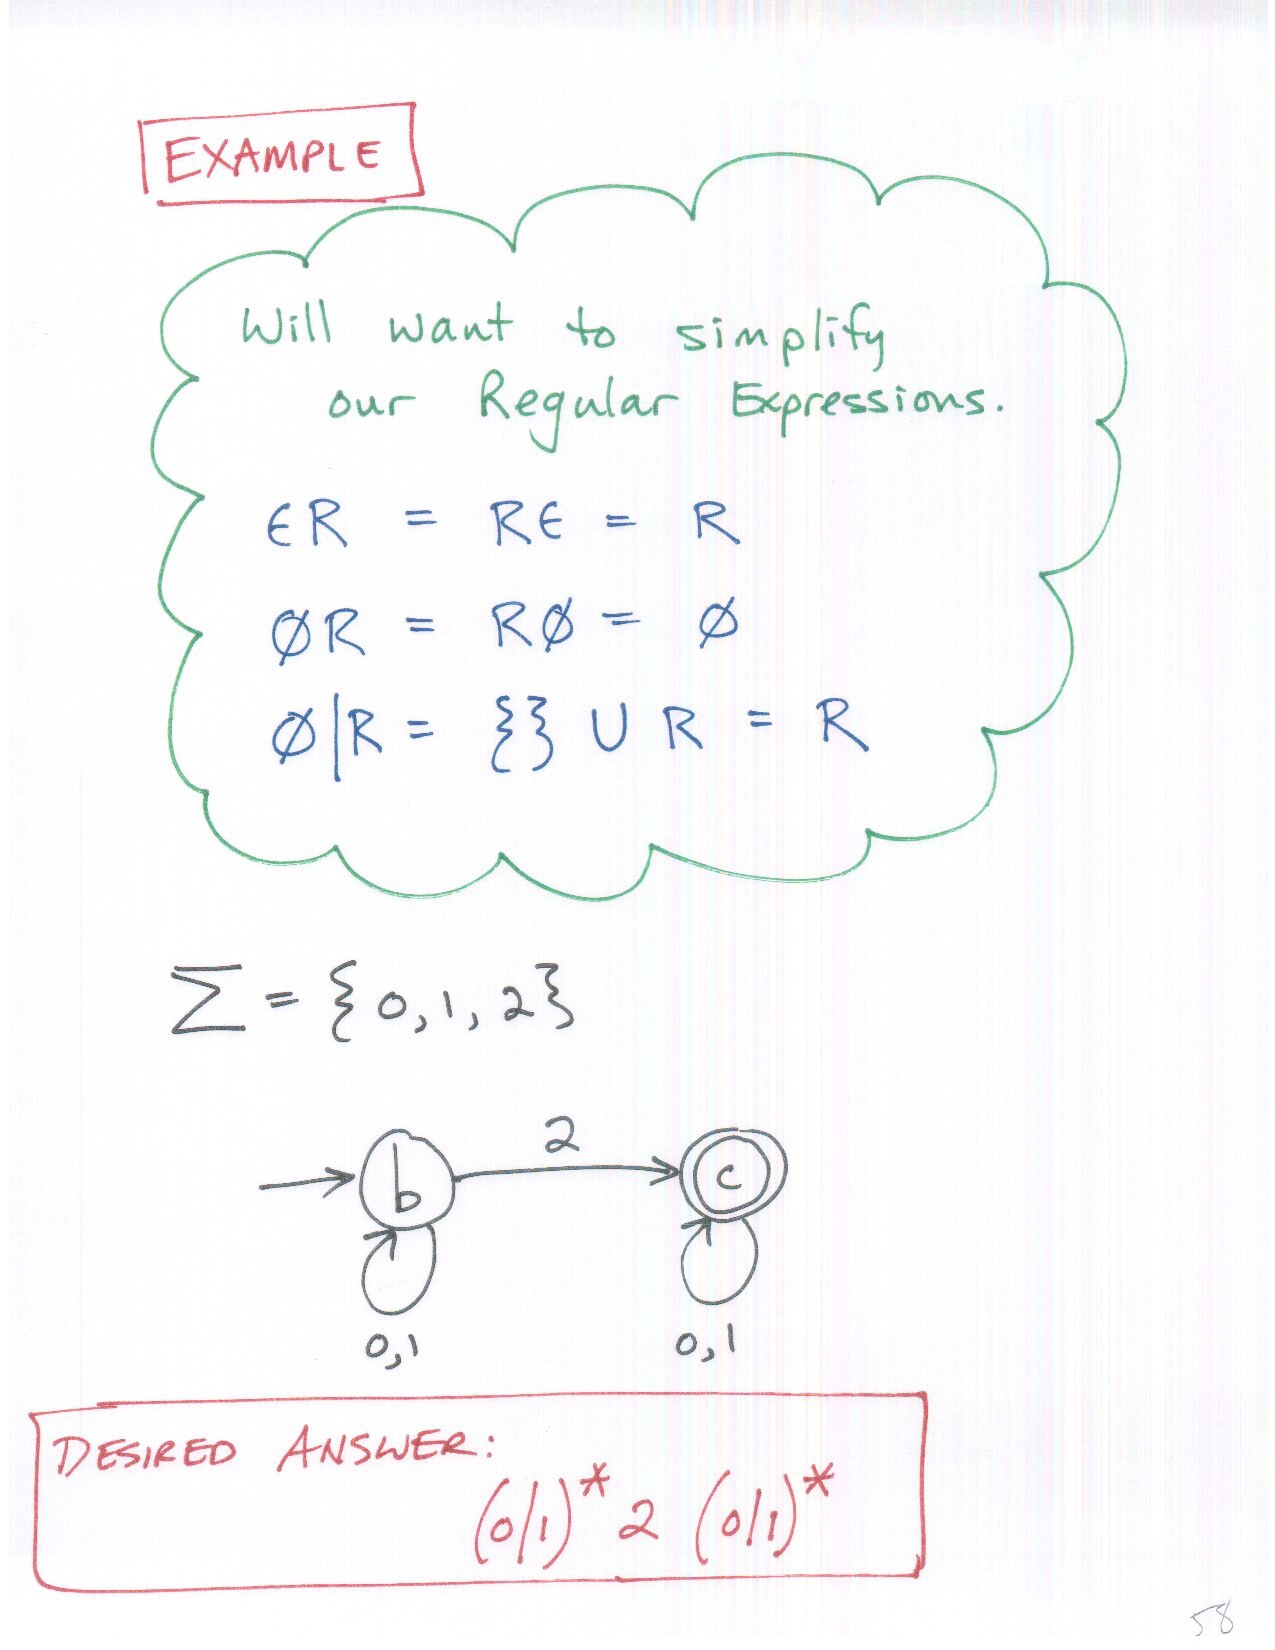 EXAMPLE
Will want to simplify
our Regular Expressions.
ϵR = Rϵ = R
∅R = R∅ = ∅
∅|R = {} ∪ R = R
Σ = {0,1,2}
2
b
c
0,1
0,1
DESIRED ANSWER:
(0|1)* 2 (0|1)*
58